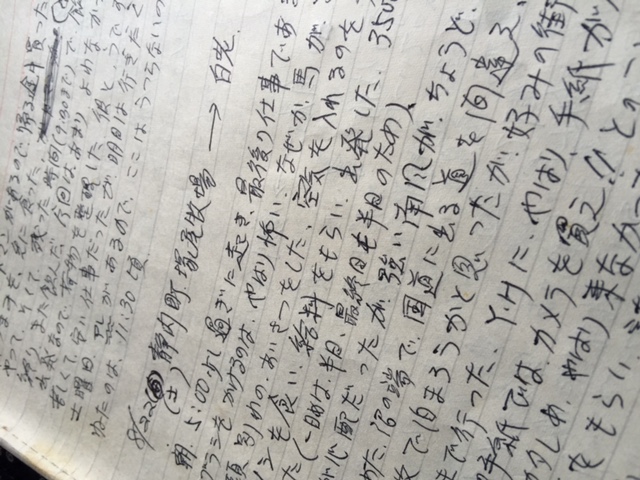 があるので、帰る途中買った
食った
やって、そして、残った時間(9:30まで)で、
また飲んだ。今回は、あまり、よれなかっ
出発なので、荷物を整理した。彼と、
安い仕事だったが、明日は行きたく
土曜日 があるので、ここは、うつらないの
ねたのは、11:30頃
8/22(土) 静内町 塚尾牧場 → 白老
朝、5:00少し過ぎに起き、最後の仕事であ
ブラシをかけるのは、やはり怖い。なぜか、馬が、
別れの、あいさつをした。空気を入れるのを
メシを食い、給料をもらい、出発した。350
た(一日めは、半日、最終日も半日のため)、
が心配だったが、強い南風が、ちょうど、
めた。沼の端で、国道に出る道を間違え、
で泊まろうかと思ったが、好みの街
まで行った。Y.Hに、やはり、手紙が
の手紙では、カメラを買え!! との
少しめ、やはり来なかっ
をもらい、